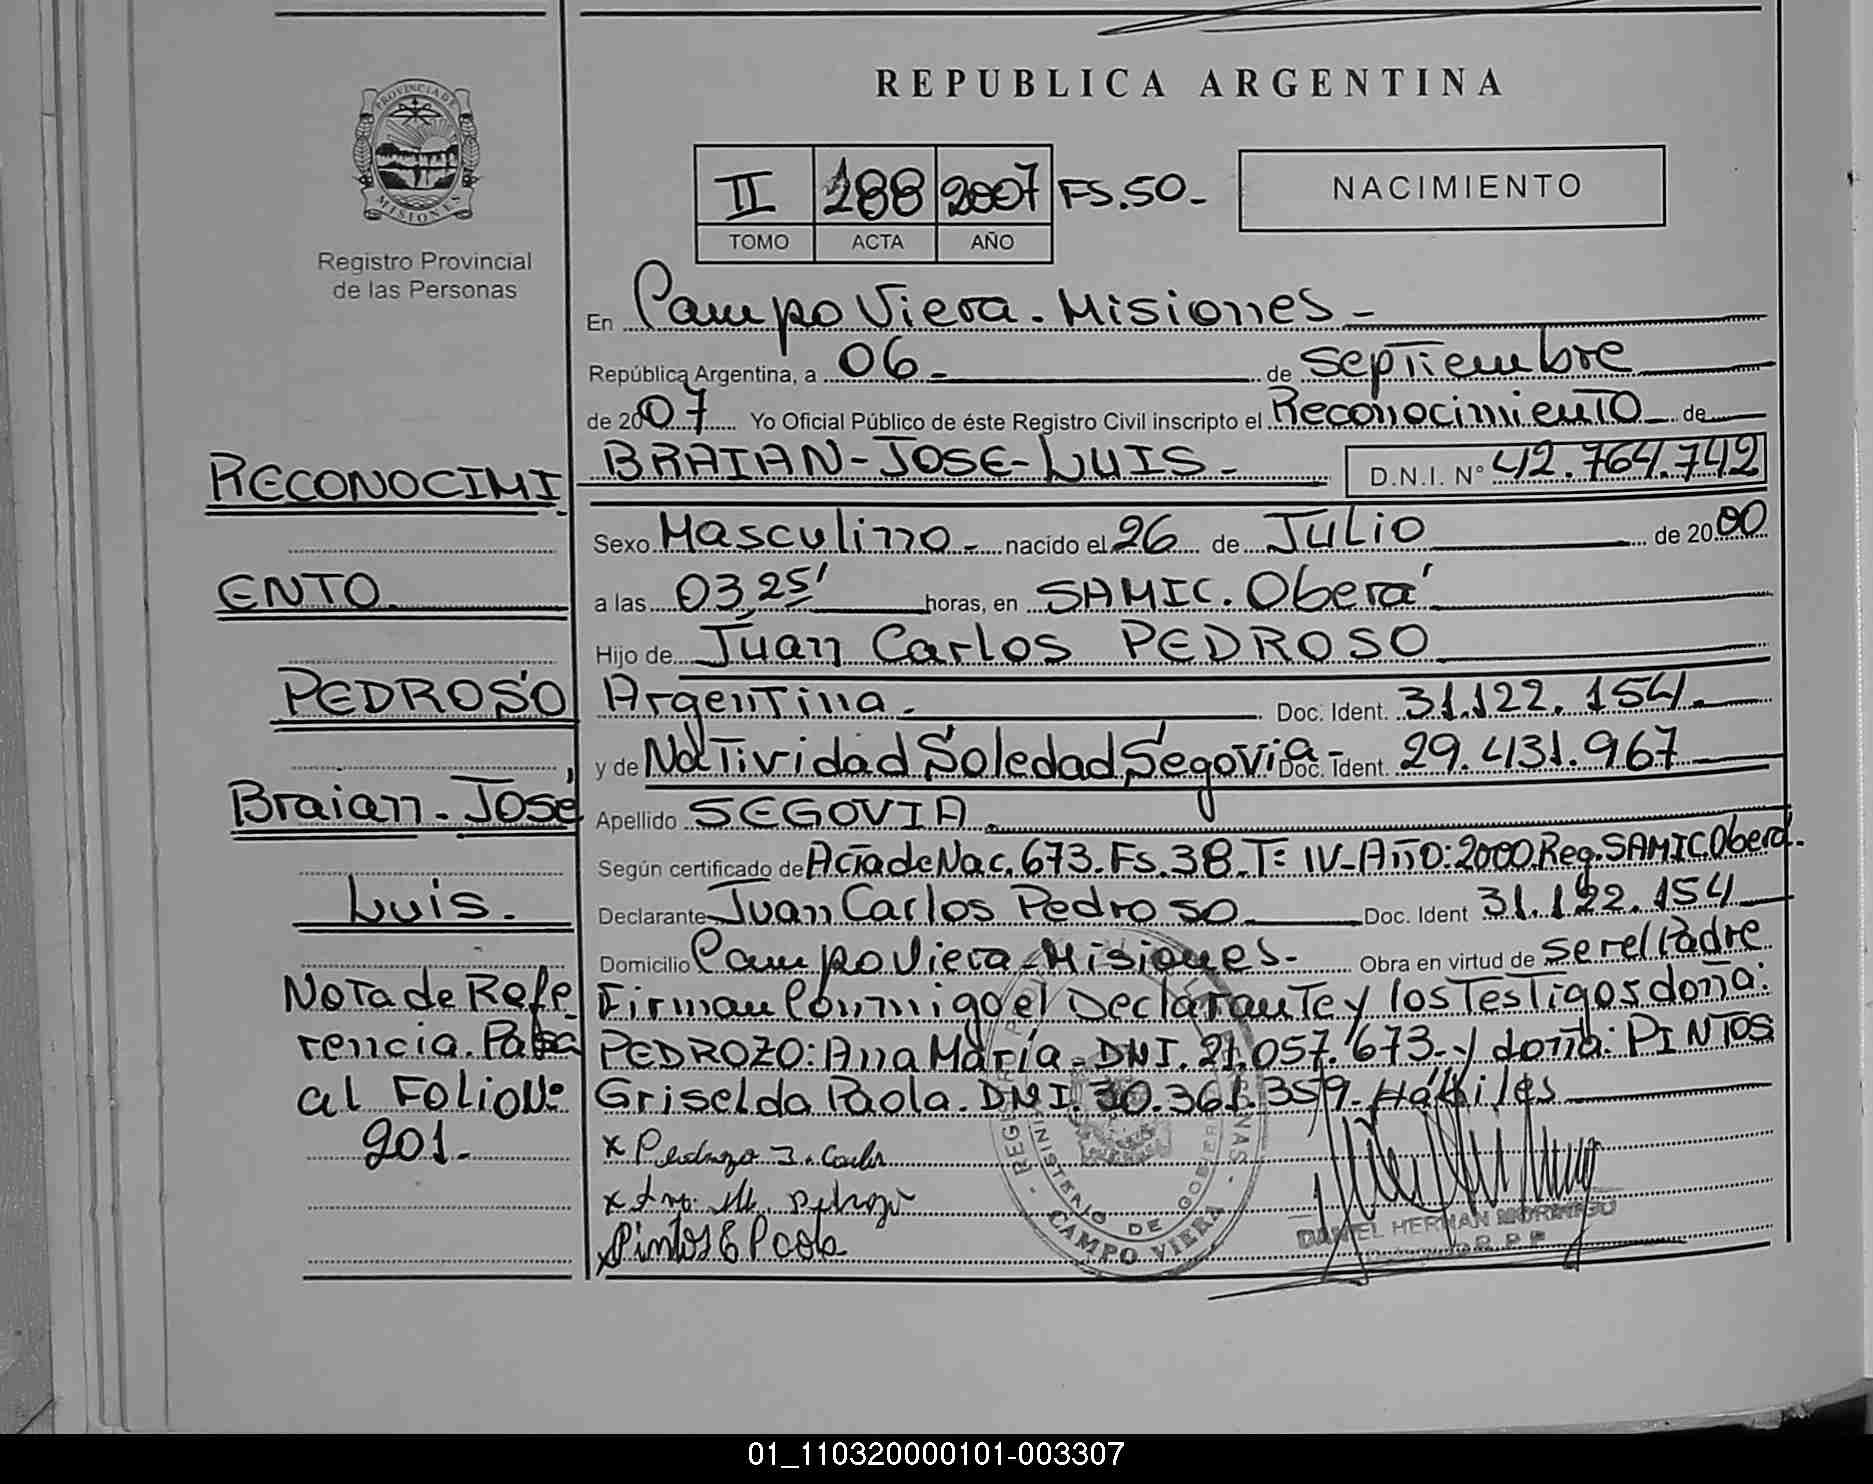 REPUBLICA ARGENTINA
PROVINCIA DE
MISIONES
Registro Provincial
de las Personas
II 288 2007 FS.50-
TOMO ACTA AÑO
NACIMIENTO
En Campo Viera - Misiones -
República Argentina, a 06 - de Septiembre
de 2007 Yo Oficial Público de éste Registro Civil inscripto el Reconocimiento de
BRAIAN-JOSE-LUIS- D.N.I. Nº 42.764.742
Sexo Masculino - nacido el 26 de Julio de 2000
a las 03,25' horas, en SAMIC. Oberá
Hijo de Juan Carlos PEDROSO
Argentina. Doc. Ident. 31.122.154.
y de Natividad Soledad Segovia- Doc. Ident. 29.431.967
Apellido SEGOVIA.
Según certificado de Acta de Nac. 673. Fs. 38. Tº IV-Año: 2000. Reg. SAMIC. Oberá.
Declarante Juan Carlos Pedroso Doc. Ident 31.122.154
Domicilio Campo Viera - Misiones - Obra en virtud de ser el Padre
Firman Conmigo el Declarante y los Testigos doña:
PEDROZO: Ana María - DNI. 21.057.673- y doña: PINTOS
Griselda Paola. DNI. 30.361.359. Hábiles
x Pedrozo J. Carlos
x Ana M. Pedrozo
Pintos G Paola
RECONOCIMI
ENTO
PEDROSO
Braian - José
Luis.
Nota de Refe
rencia. Pasa
al Folio Nº
201.
MINISTERIO DE GOBIERNO
CAMPO VIERA
DANIEL HERNAN
01_110320000101-003307